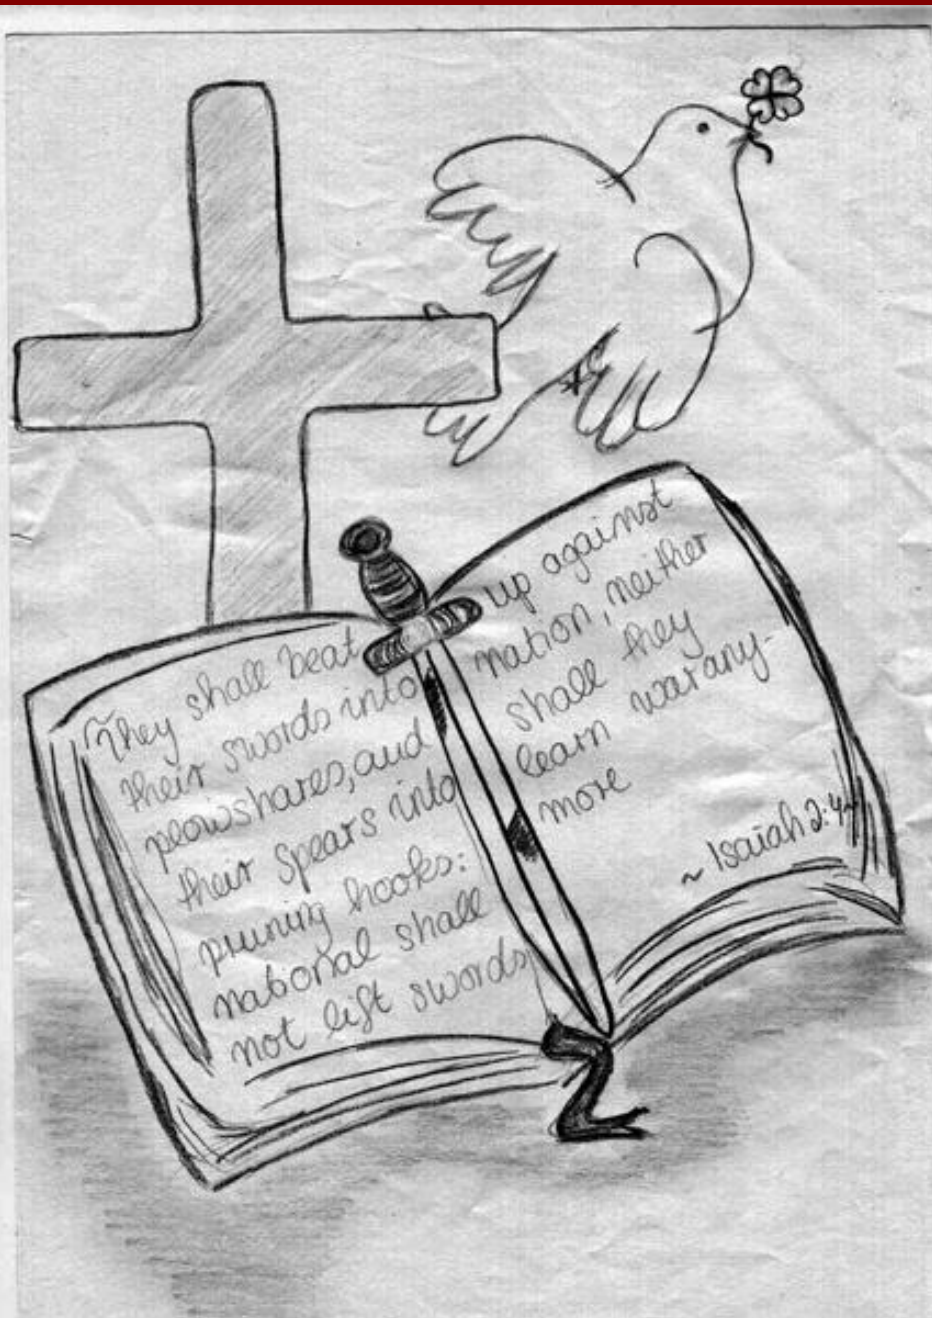 They shall beat
their swords into
plowshares, and
their spears into
pruning hooks:
national shall
not lift swords
up against
nation, neither
shall they
learn war any-
more
~ Isaiah 2:4~